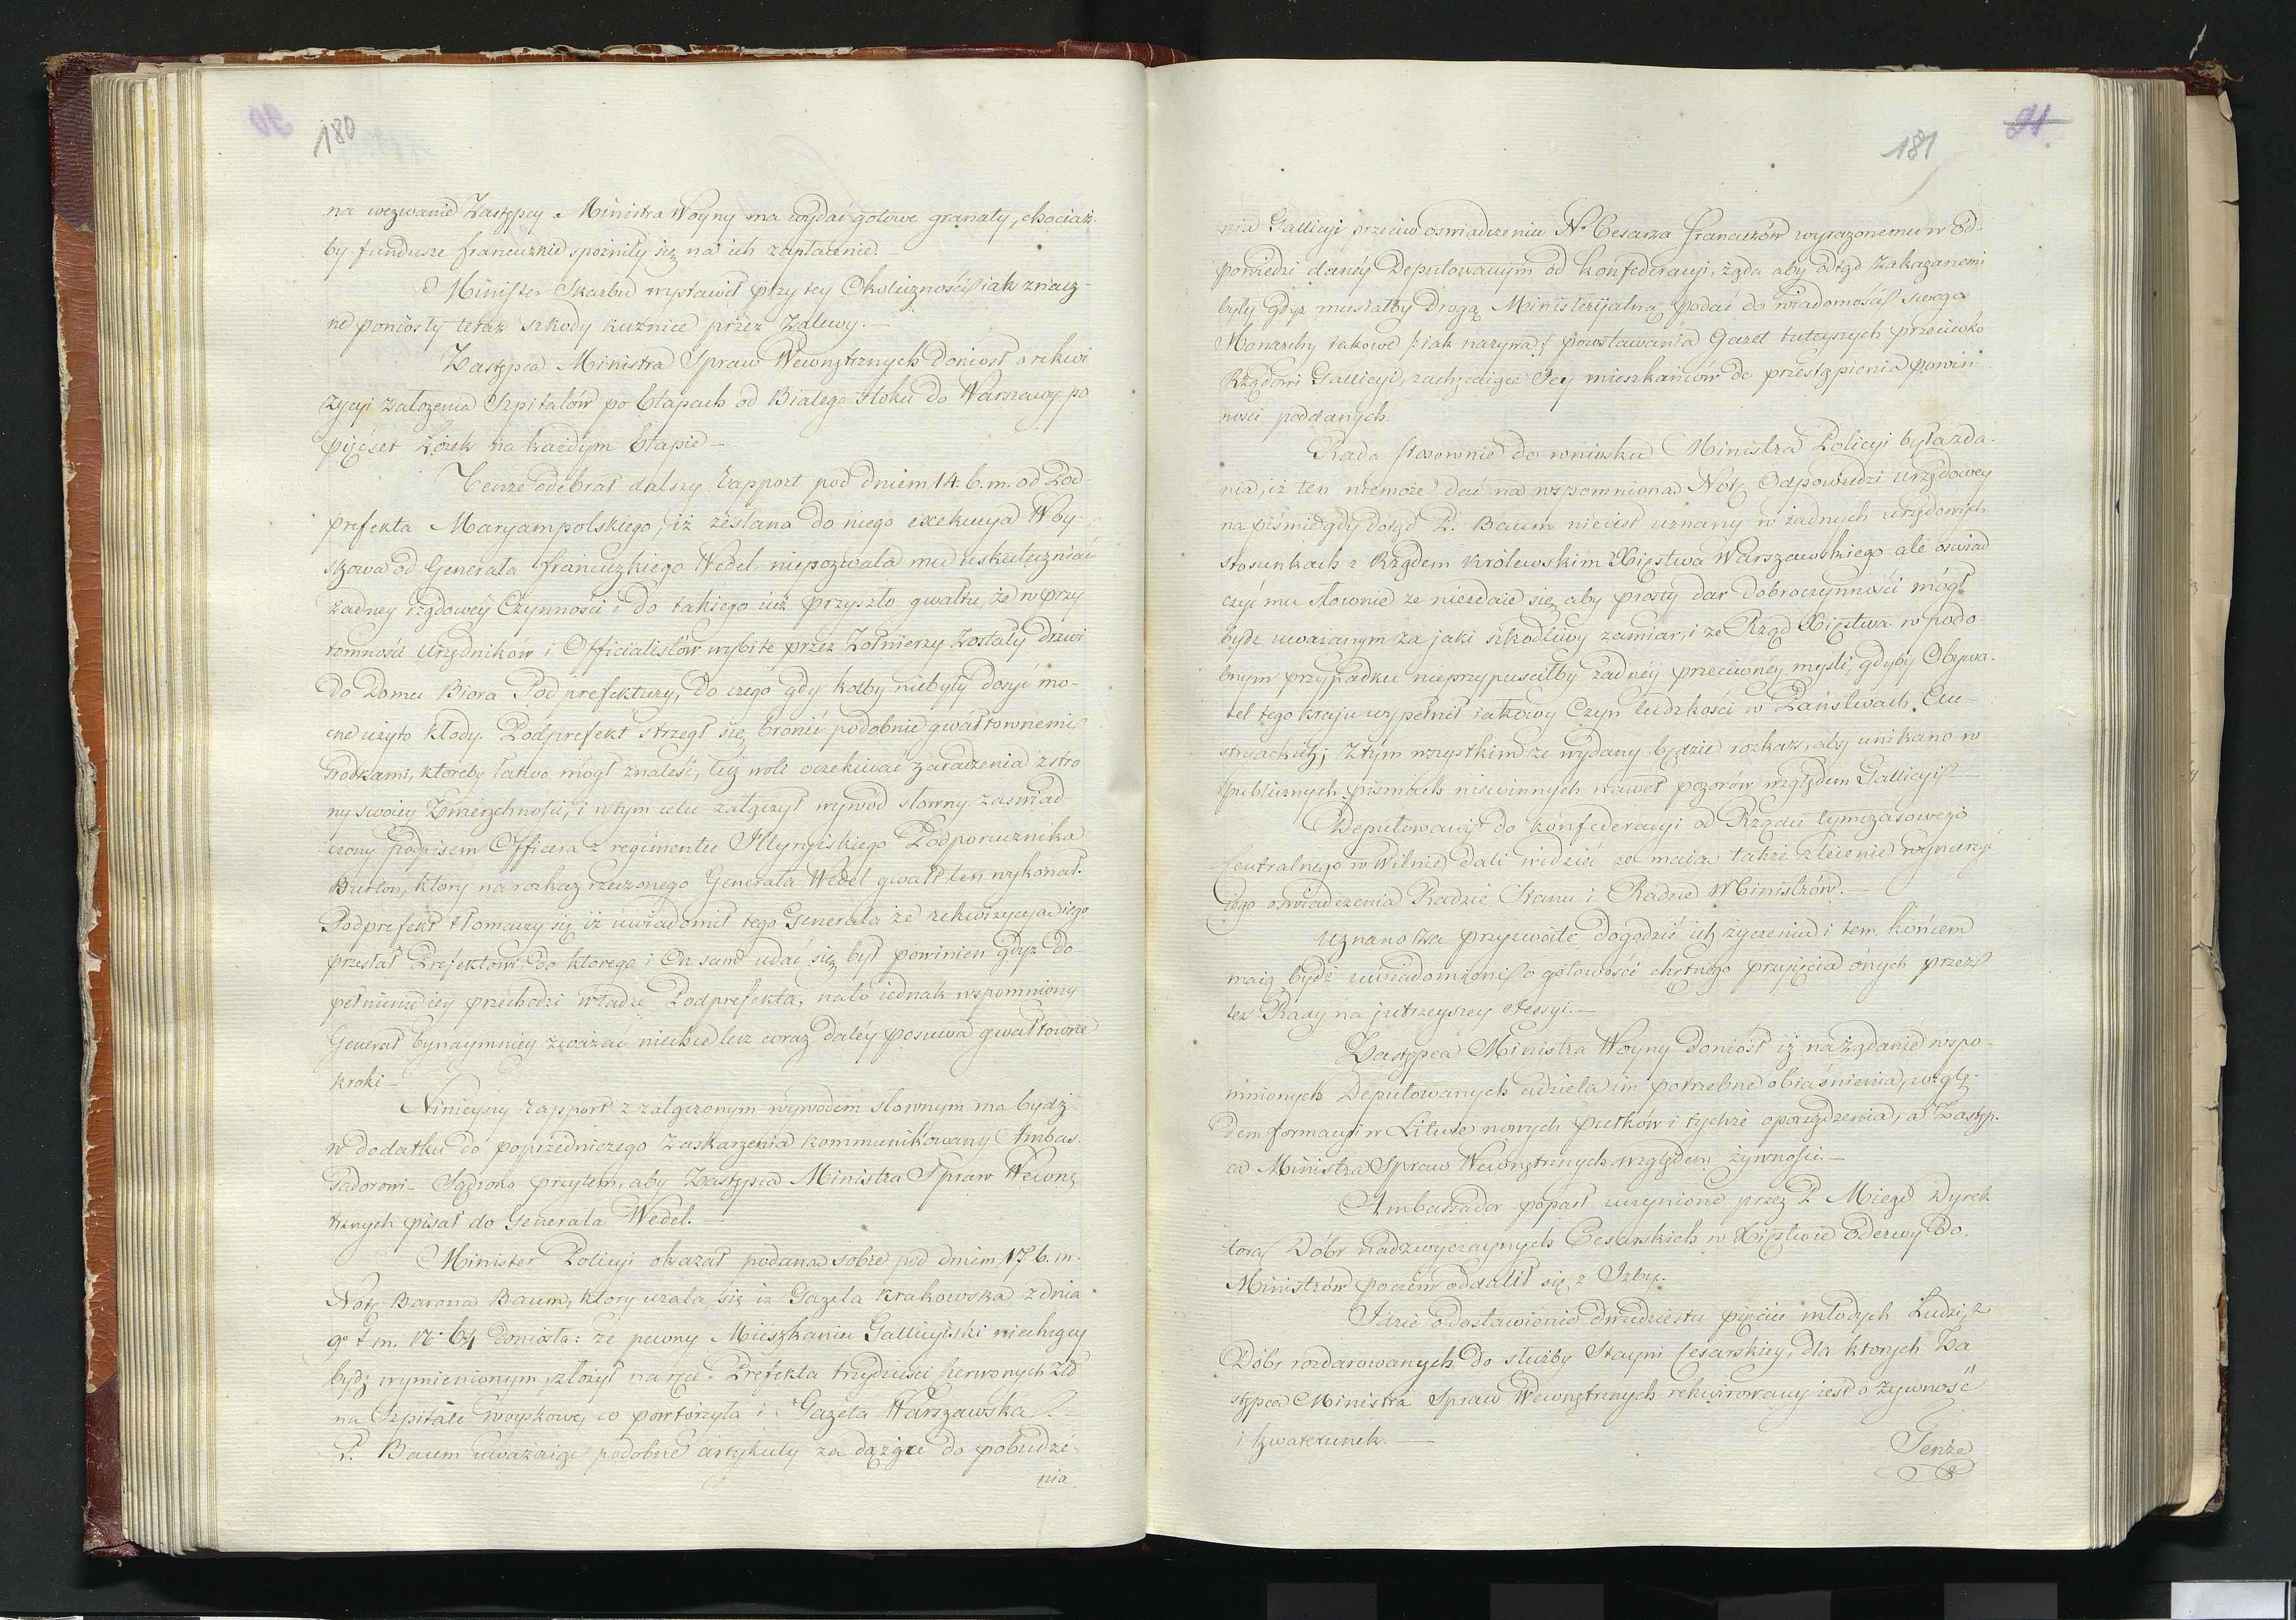 180
na wezwanie Zastępcy Ministra Woyny ma wydać gotowe granaty, chociaż-
by fundusze francuzkie spóźniły się na ich zapłacenie. —
Minister Skarbu wystawił przy tey Okoliczności iak znacz-
ne poniosły teraz szkody kuźnice przez Zalewy. —
Zastępca Ministra Spraw Wewnętrznych doniosł o rekwi
zycyi założenia Szpitalów po Etapach od Białego stoku do Warszawy po
pięćset Łóżek na każdym Etapie —
Tenże odebrał dalszy Rapport pod dniem 14. b. m. od Pod-
prefekta Maryampolskiego, iż zesłana do niego exekucya Woy-
skowa od Generała francuzkiego Wedel niepozwala mu uskuteczniać
żadney rządowey Czynności i do takiego iuż przyszło gwałtu, że w przy
tomności Urzędników i Officialistów wybite przez Żołnierzy Zostały drzwi
do Domu Biora Podprefektury, do czego gdy kolby niebyły dosyć mo-
cne użyto kłody. Podprefekt strzegł się bronić podobnie gwałtownemi
środkami, któreby łatwo mógł znaleść, lecz woli oczekiwać zaradzenia z stro-
ny swoiey Zwierzchności, i w tym celu załączył wywód słowny zaświad
czony podpisem Officera z regimentu Illyryiskiego Podporucznika
Burlon, który na rozkaz rzeczonego Generała Wedel gwałt ten wykonał.
Podprefekt tłomaczy się iż uwiadomił tego Generała że rekwizycya iego
przesłał Prefektowi do którego i On sam udać się był powinien gdyż do-
pełnienie iey przechodzi władzę Podprefekta, na to iednak wspomniony
Generał bynaymniey zważać niechce lecz coraz daléy posuwa gwałtowne
kroki —
Ninieyszy rapport z załączonym wywodem słownym ma bydź
w dodatku do poprzedniczego Zaskarżenia kommunikowany Ambas-
sadorowi — Sądzono przytem, aby Zastępca Ministra Spraw Wewnę
trznych pisał do Generała Wedel. —
Minister Policyi okazał podaną sobie pod dniem 17 b. m.
Notę Barona Baum, który użala się iż Gazeta Krakowska z dnia
9º t. m. Nº 64 doniosła: że pewny Mieszkaniec Gallicyiski niechcący
bydź wymienionym złożył na ręce Prefekta trzydzieści czerwonych Złł
na Szpitale woyskowe, co powtórzyła i Gazeta Warszawska. —
P. Baum uważaiąc podobne artykuły za dążące do pobudze-
nia
181
91
nia Gallicyi przeciw oświadczeniu N. Cesarza francuzów wyrażonemu w Od-
powiedzi danéy Deputowanym od konfederacyi, żąda aby odtąd zakazanemi
były gdyż musiałby drogą Ministeryjalną podać do wiadomości swego
Monarchy takowe /: iak nazywa :/ powstawania Gazet tuteyszych przeciwko
Rządowi Gallicyi, zachęcaiące Jey mieszkańców do przestąpienia powin
ności poddanych.
Rada stosownie do wniosku Ministra Policyi była zda-
nia, iż ten niemoże dać na wspomnioną Notę Odpowiedzi urzędowey
na piśmie gdy dotąd P. Baum nieiest uznany w żadnych urzędowych
stosunkach z Rządem Królewskim Xięstwa Warszawskiego ale oświad
czyć mu słownie że niezdaie się aby prosty dar dobroczynności mógł
bydź uważanym za jaki szkodliwy zamiar, i że Rząd Xięstwa w podo
bnym przypadku nieprzypuściłby żadnéy przeciwney myśli, gdyby Obywa-
tel tego kraju wypełnił iakowy Czyn ludzkości w Państwach Au-
stryackich; z tym wszystkim że wydany będzie rozkaz, aby unikano w
publicznych pismach niewinnych nawet pozorów względem Gallicyi —
Deputowani do konfederacyi od Rządu tymczasowego
Centralnego w Wilnie dali wiedzieć że maią także zlecenie wynurzyć
iego oświadczenia Radzie Stanu i Radzie Ministrów. —
Uznano za przyzwoite dogodzić ich życzeniu i tem końcem
maią bydź uwiadomieni o gotowości chętnego przyięcia onych przez
też Rady na jutrzeyszey Sessyi. —
Zastępca Ministra Woyny doniósł iż na żądanie wspo-
mnionych Deputowanych udziela im potrzebne obiaśnienia, wzglę-
dem formacyi w Litwie nowych pułków i tychże oporządzenia, a Zastęp-
ca Ministra Spraw Wewnętrznych względem żywności. —
Ambassador poparł uczynione przez P. Miege Dyrek
tora Dóbr Nadzwyczaynych Cesarskich w Xięstwie Odezwy do
Ministrów poczem oddalił się z Izby.
Idzie o dostawienie dwudziestu pięciu młodych Ludzi z
Dóbr rozdarowanych do służby Stayni Cesarskiey, dla których Za
stępca Ministra Spraw Wewnętrznych rekwirowany iest o żywność
i kwaterunek. —
Tenże